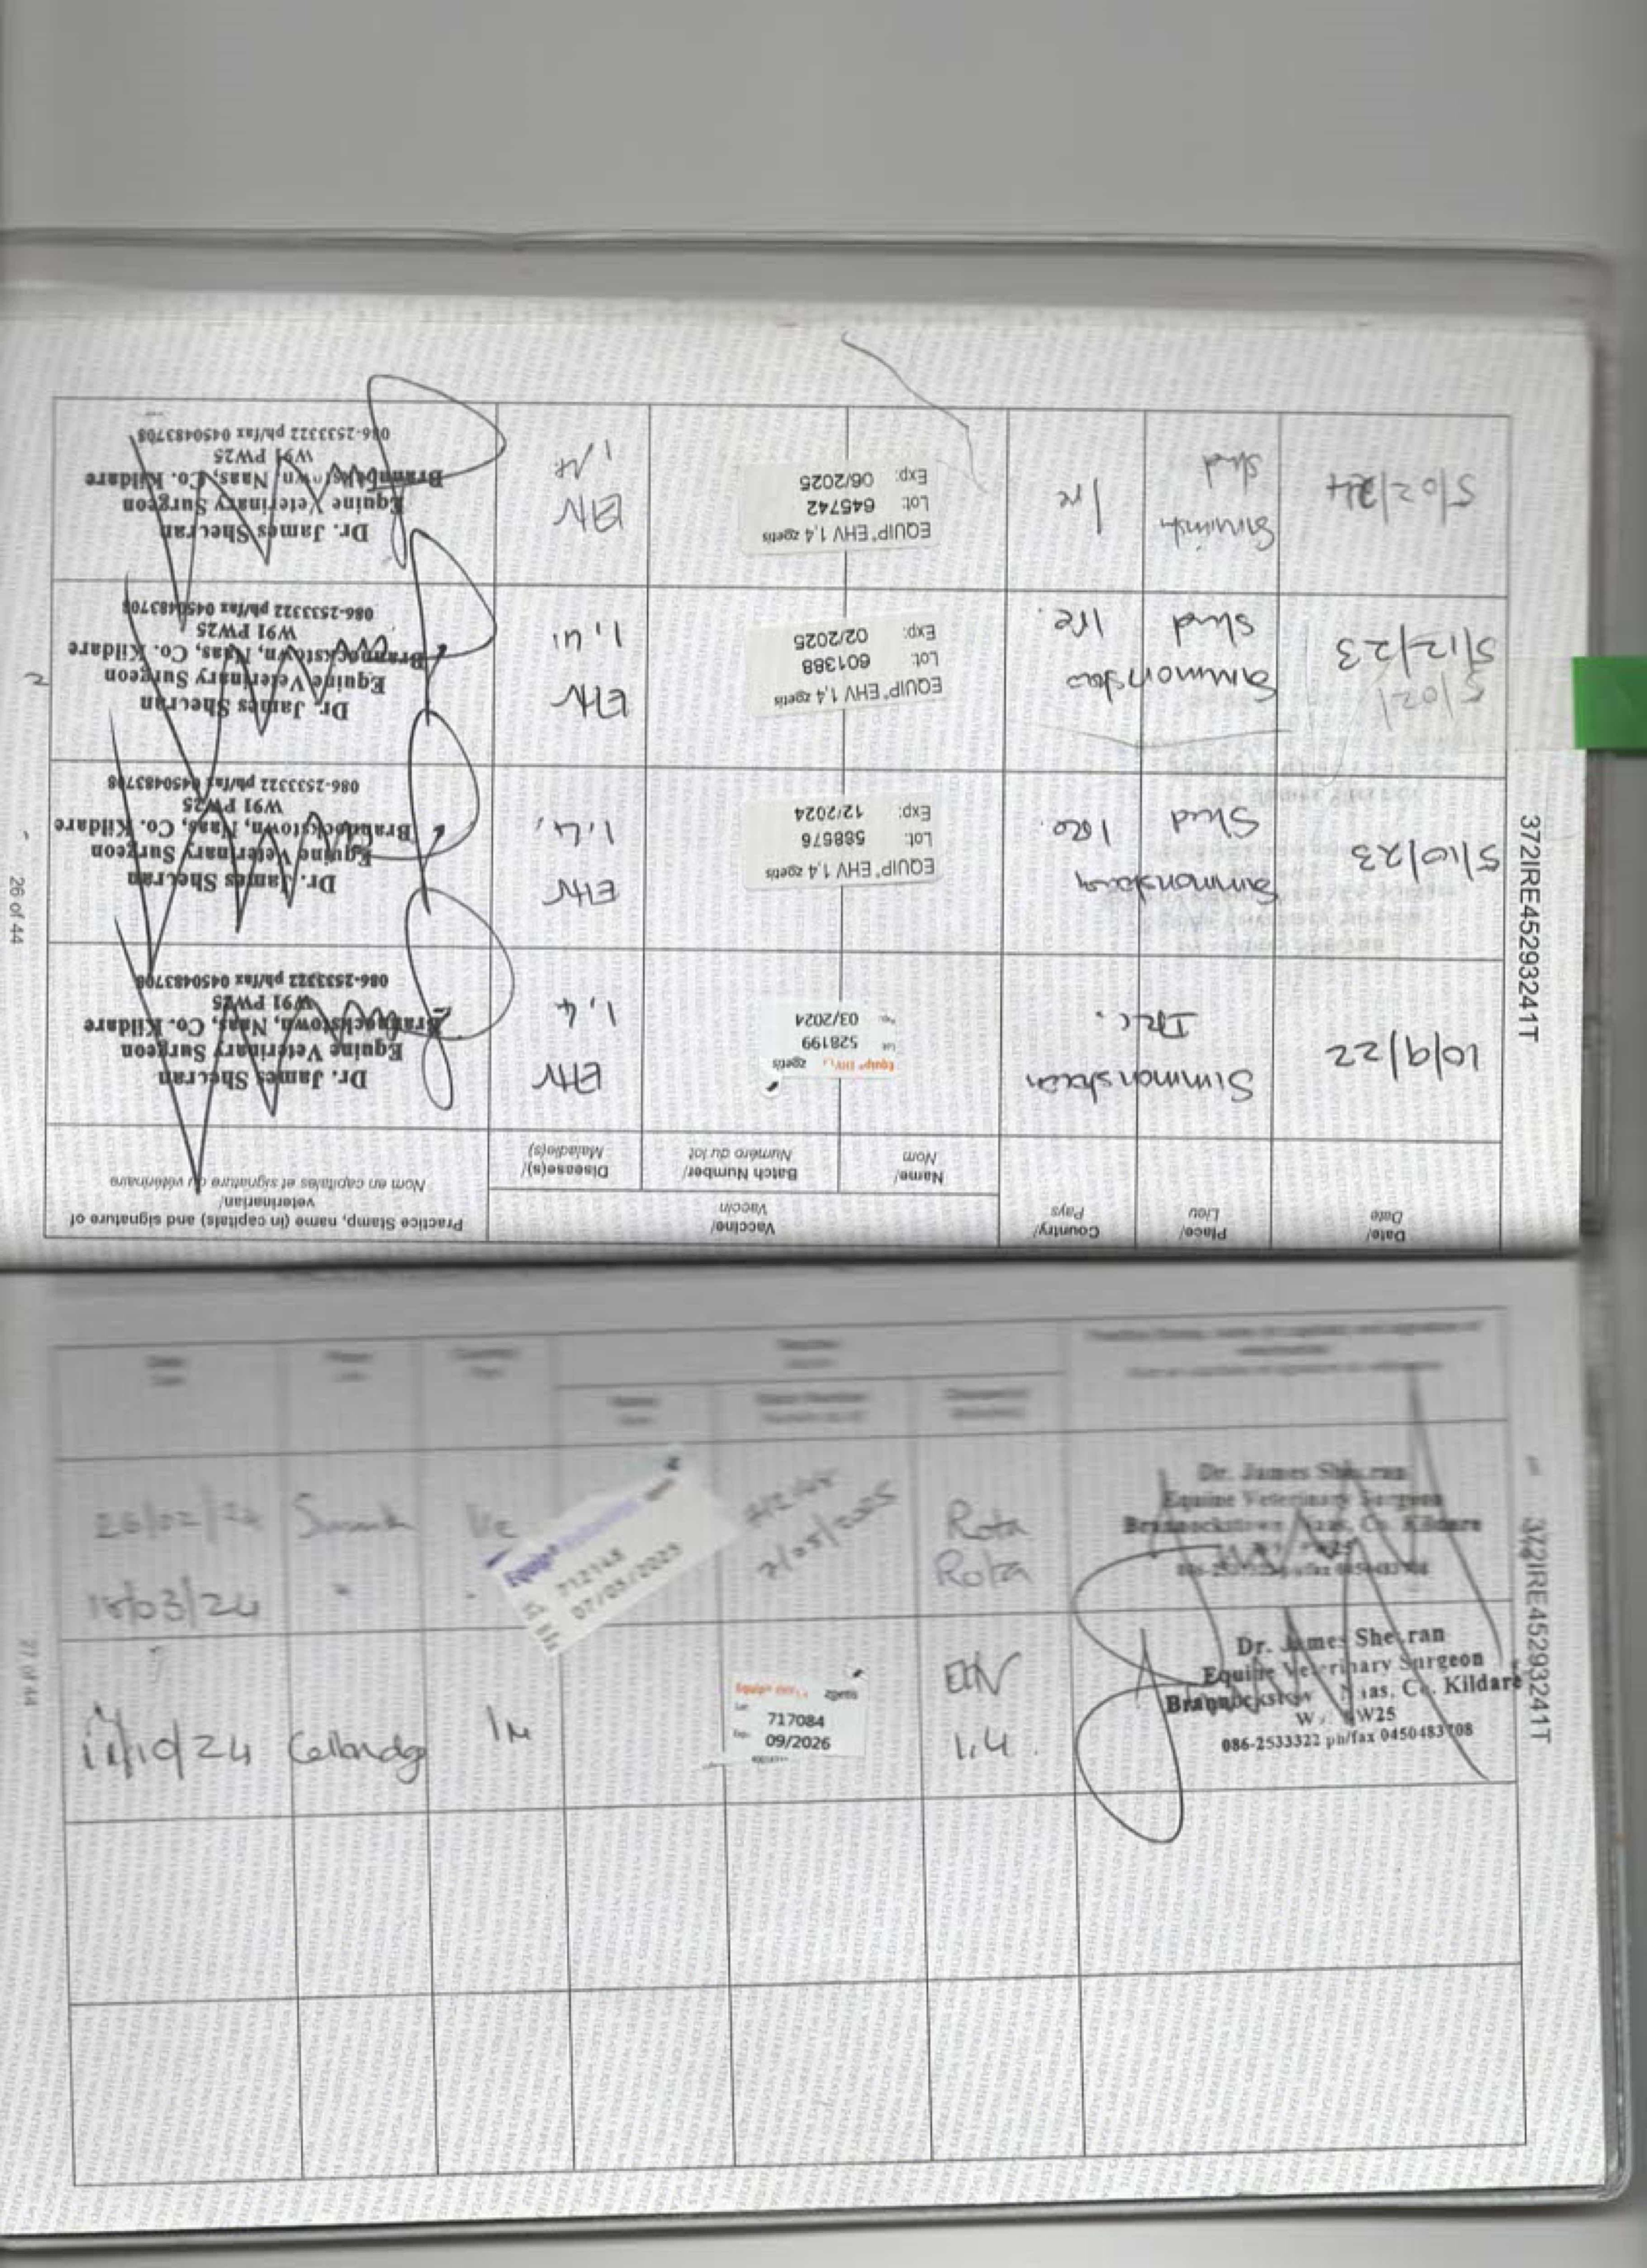 Date/
Date
Place/
Lieu
Country/
Pays
Vaccine/
Vaccin
Name/
Nom
Batch Number/
Numéro du lot
Disease(s)/
Maladie(s)
Practice Stamp, name (in capitals) and signature of
veterinarian/
Nom en capitales et signature du vétérinaire
10/9/22
Simmonstown
Ire.
Equip® EHV1,4 zoetis
Lot 528199
Exp. 03/2024
EHV
1,4
Dr. James Sheeran
Equine Veterinary Surgeon
Brannockstown, Naas, Co. Kildare
W91 PW25
086-2533322 ph/fax 0450483708
5/10/23
Simmonstown
Stud
Ire.
EQUIP® EHV 1,4 zoetis
Lot: 588576
Exp: 12/2024
EHV
1,4,
Dr. James Sheeran
Equine Veterinary Surgeon
Brannockstown, Naas, Co. Kildare
W91 PW25
086-2533322 ph/fax 0450483708
5/02/
5/12/23
Stud
Ire.
EQUIP® EHV 1,4 zoetis
Lot: 601388
Exp: 02/2025
EHV
1,4,
Dr. James Sheeran
Equine Veterinary Surgeon
Brannockstown, Naas, Co. Kildare
W91 PW25
086-2533322 ph/fax 0450483708
5/02/24
Stud
Ire
EQUIP® EHV 1,4 zoetis
Lot: 645742
Exp: 06/2025
EHV
Dr. James Sheeran
Equine Veterinary Surgeon
Brannockstown, Naas, Co. Kildare
W91 PW25
086-2533322 ph/fax 0450483708
372IRE45293241T
26 of 44
26/02/24
Ire
Equip® zoetis
712148
07/05/2025
712148
7/05/2025
Rota
18/03/24
"
Rota
Dr. James Sheeran
Equine Veterinary Surgeon
Brannockstown, Naas, Co. Kildare
W91 PW25
086-2533322 ph/fax 0450483708
11/10/24
Celbridge
Ire
Equip® EHV1,4 zoetis
Lot 717084
Exp. 09/2026
EHV
1,4.
Dr. James Sheeran
Equine Veterinary Surgeon
Brannockstown, Naas, Co. Kildare
W91 PW25
086-2533322 ph/fax 0450483708
372IRE45293241T
27 of 44